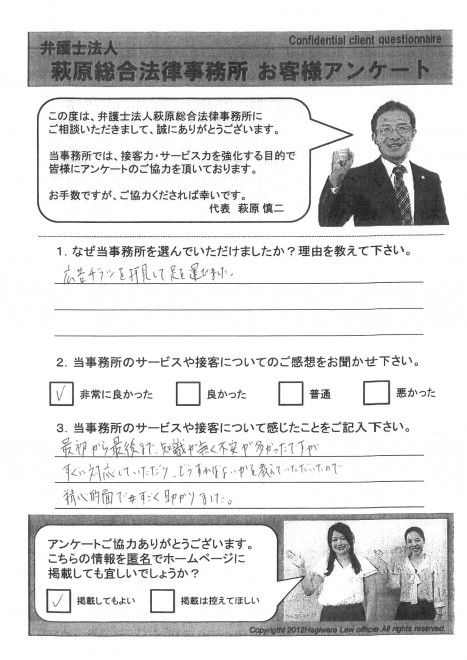 Confidential client questionnaire
弁護士法人
萩原総合法律事務所 お客様アンケート
この度は、弁護士法人萩原総合法律事務所に
ご相談いただきまして、誠にありがとうございます。
当事務所では、接客力・サービス力を強化する目的で
皆様にアンケートのご協力を頂いております。
お手数ですが、ご協力くだされば幸いです。
代表 萩原 慎二
1. なぜ当事務所を選んでいただけましたか？理由を教えて下さい。
広告チラシを拝見して足を運びました。
2. 当事務所のサービスや接客についてのご感想をお聞かせ下さい。
✓ 非常に良かった 良かった 普通 悪かった
3. 当事務所のサービスや接客について感じたことをご記入下さい。
最初から最後まで、知識が無く不安が多かったですが
すぐに対応していただり、どうすればよいかを教えていただいたので
精神的面ですごく助かりました。
アンケートご協力ありがとうございます。
こちらの情報を匿名でホームページに
掲載しても宜しいでしょうか？
✓ 掲載してもよい 掲載は控えてほしい
Copyright 2012Hagiwara Law office. All rights reserved.